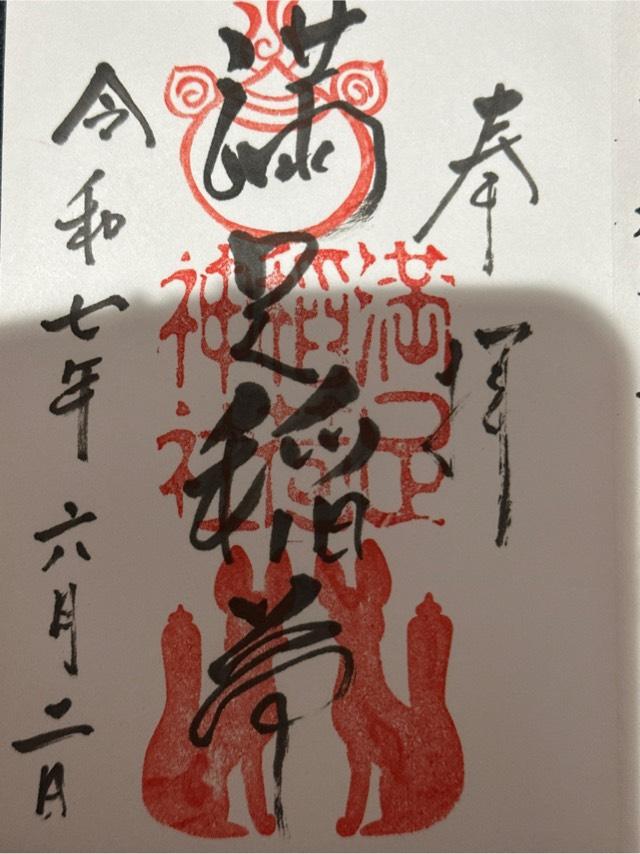 奉拝
満足稲荷
満足稲荷神社
令和七年六月二日